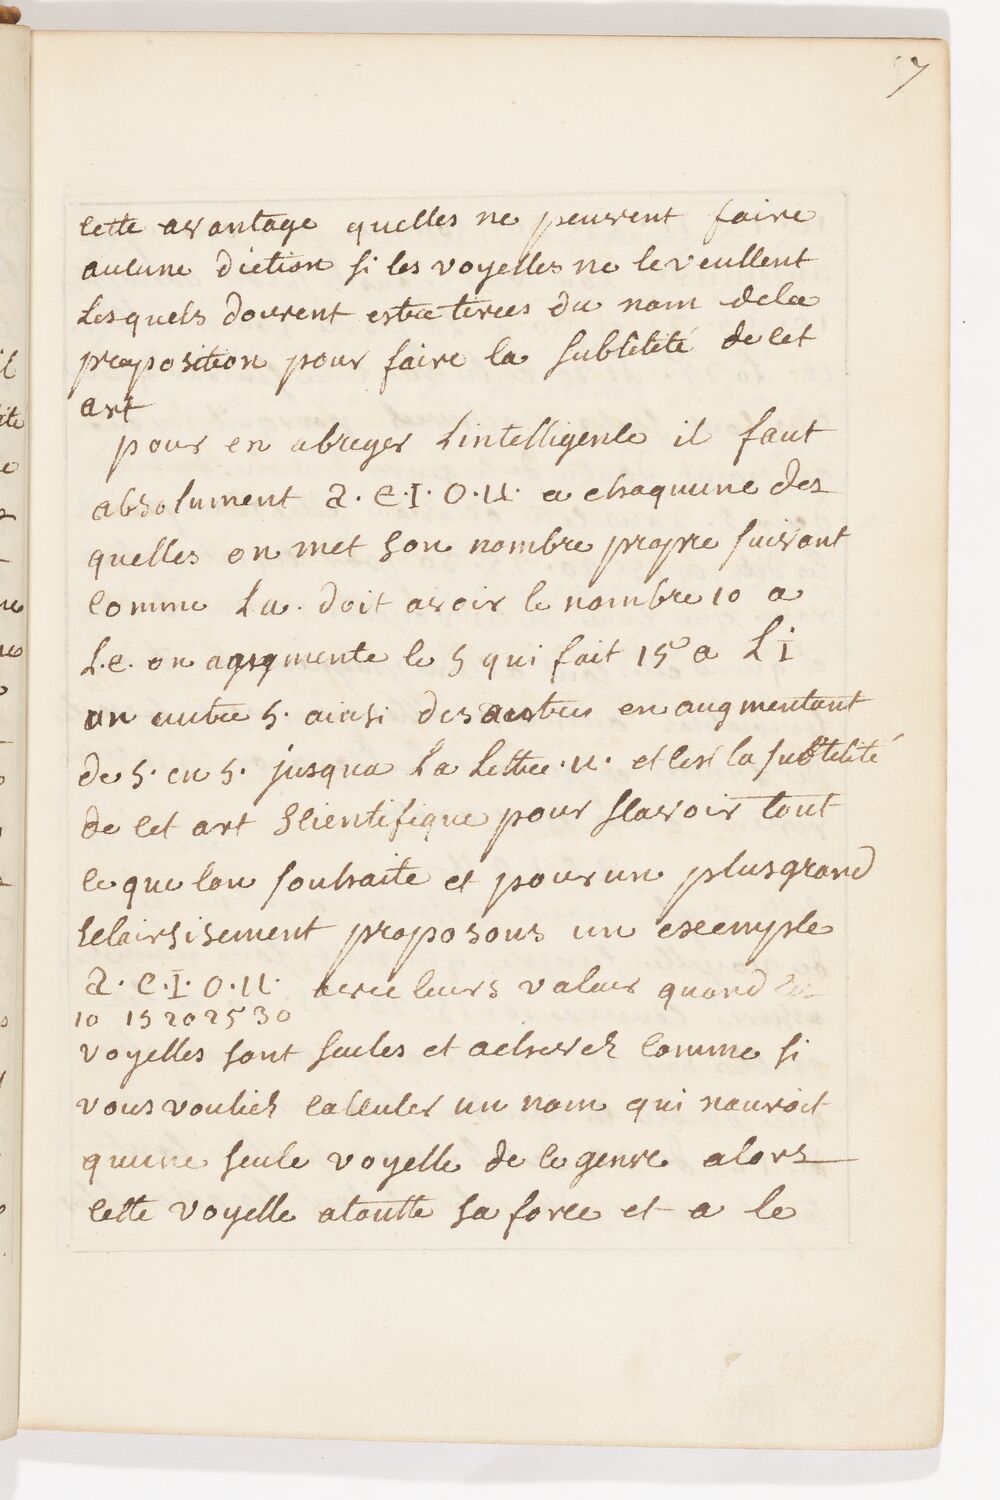 7
cette avantage quelles ne peuvent faire
aucune diction si les voyelles ne le veullent
Lesquels doivent estre tirees du nom dela
preposition pour faire la subtilité de cet
art
pour en abreger Lintelligence il faut
absolument a. e. I. O. U. a chaquune des
quelles on met son nombre propre suivant
comme La. doit avoir le nombre 10 a
L.e. on augmente le 5 qui fait 15 a L I
un autre 5. ainsi des autres en augmentant
de 5. en 5. jusqua La Lettre .u. et cest la subtilité
de cet art scientifique pour scavoir tout
ce que lon souhaite et pour un plus grand
seclairsisement proposons un exemple
a. e. I. O. U. avec leurs valeur quand les
10 15 20 25 30
voyelles sont seules et achevez comme si
vous vouliez calculer un nom qui nauroit
quune seule voyelle de ce genre alors
cette voyelle atoutte sa force et a le